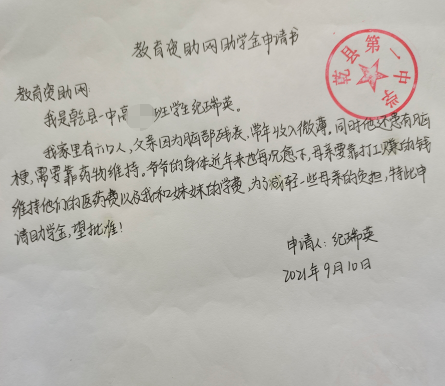 教育资助网助学金申请书
乾县第一中学
教育资助网:
我是乾县一中高 班学生纪瑞英。
我家里有六口人,父亲因为脑部残表,常年收入微薄。同时他还患有脑
梗,需要靠药物维持。爷爷的身体近年来也每况愈下,母亲要靠打工赚的钱
维持他们的医药费以及我和妹妹的学费,为了减轻一些母亲的负担,特此申
请助学金,望批准!
申请人:纪瑞英
2021年9月10日